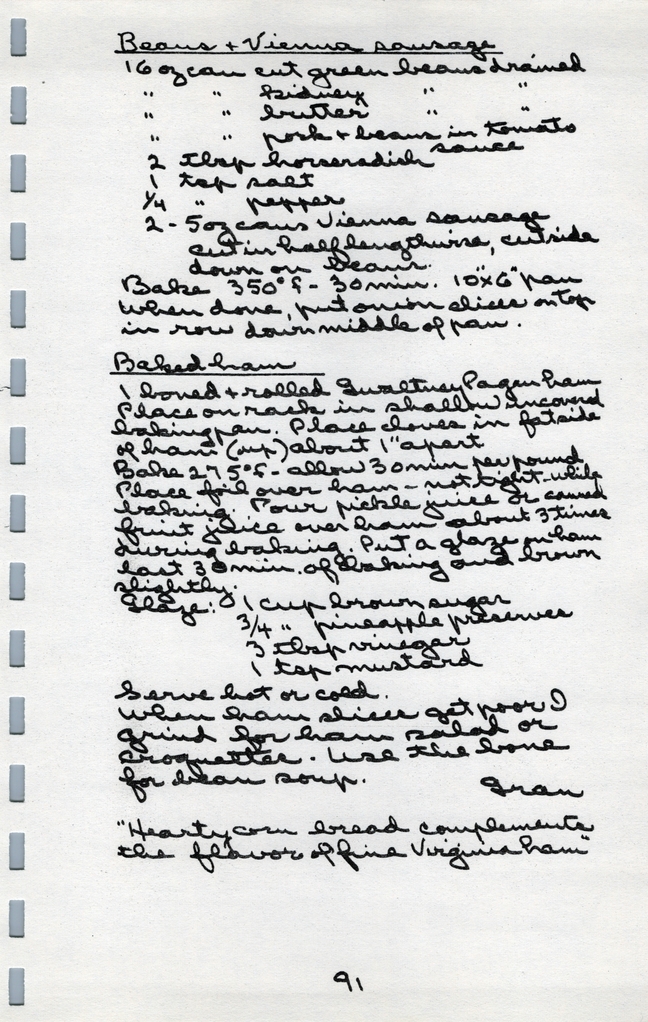 Beans + Vienna sausage
16 oz can cut green beans drained
" " kidney " "
" " butter " "
" " pork + beans in tomato
sauce
2 tbsp horseradish
1 tsp salt
1/4 " pepper
2 - 5 oz cans Vienna sausage
cut in half lengthwise, cut side
down on beans.
Bake 350°f - 30 min. 10"x6" pan
When done, put onion slices on top
in row down middle of pan.
Baked ham
1 boned + rolled Gwaltney Pagen ham
Place on rack in shallow uncovered
baking pan. Place cloves in fat side
of ham (up) about 1" apart
Bake 275°f - allow 30 min per pound
Place foil over ham - not tight - while
baking. Pour pickle juice or canned
fruit juice over ham about 3 times
during baking. Put a glaze on ham
last 30 min. of baking and brown
slightly.
Glaze: 1 cup brown sugar
3/4 " pineapple preserves
3 tbsp vinegar
1 tsp mustard
Serve hot or cold.
When ham slices get poor I
grind for ham salad or
croquettes. Use the bone
for bean soup.
Gran
"Hearty corn bread complements
the flavor of fine Virginia ham"
91